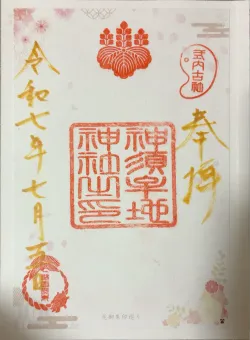 式内古社
奉拝
神須牟地
神社之印
令和七年七月